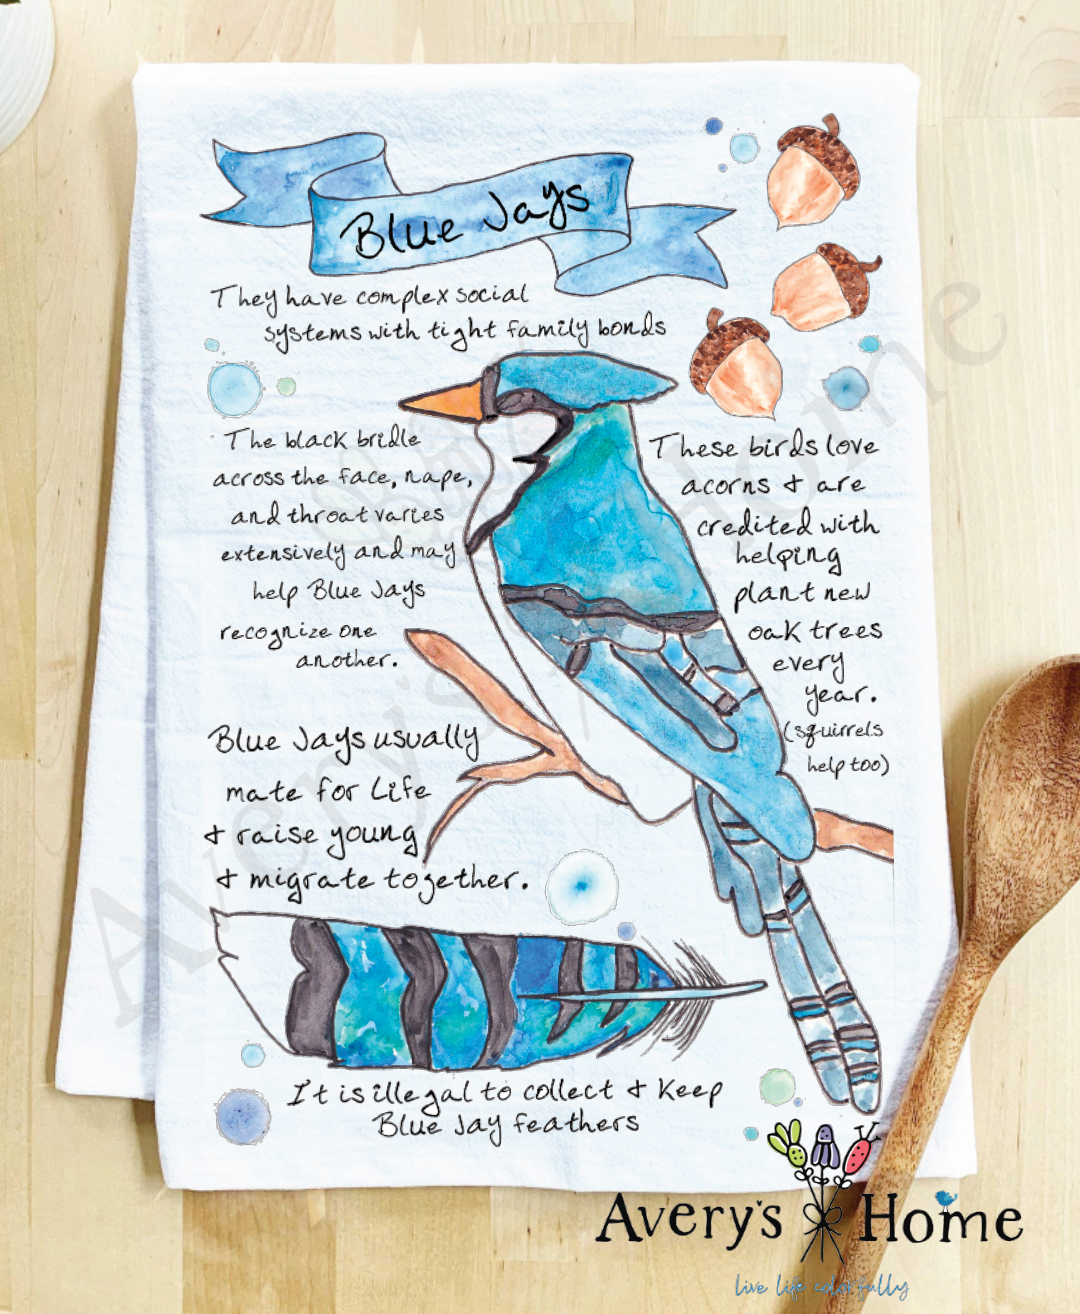 Blue Jays
They have complex social
systems with tight family bonds
The black bridle
across the face, nape,
and throat varies
extensively and may
help Blue Jays
recognize one
another.
These birds love
acorns & are
credited with
helping
plant new
oak trees
every
year.
(squirrels
help too)
Blue Jays usually
mate for Life
& raise young
& migrate together.
It is illegal to collect & Keep
Blue Jay feathers
Avery's Home
Avery's Home
live life colorfully